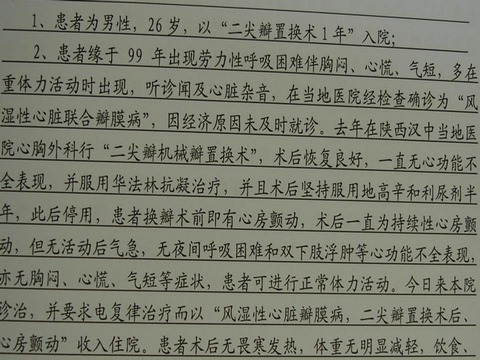 1、患者为男性，26岁，以“二尖瓣置换术1年”入院；
2、患者缘于 99 年出现劳力性呼吸困难伴胸闷、心慌、气短，多在
重体力活动时出现，听诊闻及心脏杂音，在当地医院经检查确诊为“风
湿性心脏联合瓣膜病”，因经济原因未及时就诊。去年在陕西汉中当地医
院心胸外科行“二尖瓣机械瓣置换术”，术后恢复良好，一直无心功能不
全表现，并服用华法林抗凝治疗，并且术后坚持服用地高辛和利尿剂半
年，此后停用，患者换瓣术前即有心房颤动，术后一直为持续性心房颤
动，但无活动后气急，无夜间呼吸困难和双下肢浮肿等心功能不全表现，
亦无胸闷、心慌、气短等症状，患者可进行正常体力活动。今日来本院
诊治，并要求电复律治疗而以“风湿性心脏瓣膜病，二尖瓣置换术后、
心房颤动”收入住院。患者术后无畏寒发热，体重无明显减轻，饮食、